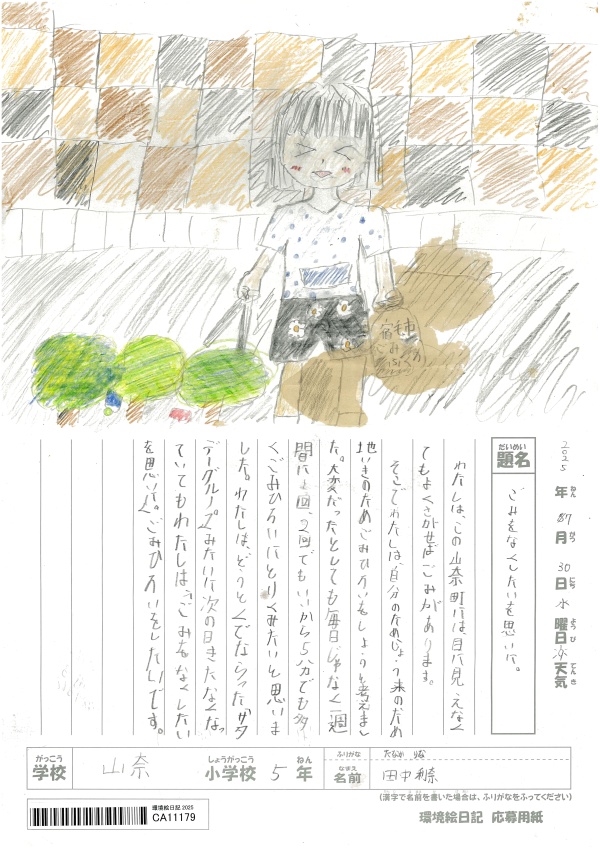 2025年 7月 30日 水曜日 天気
ねん がつ にち ようび てんき
だいめい
題名
ごみをなくしたいを思いに。
わたしは、この山奈町には、目に見えなく
てもよくさがせばごみがあります。
そこでわたしは、自分のためしょう来のため
地いきのためごみひろいをしようと考えまし
た。大変だったとしても毎日じゃなく一週
間に1回、2回でもいいから5分でも多
くごみひろいにとりくみたいと思いま
した。わたしは、どうとくでならった「ガタ
デーグルノ」みたいに次の日きたなくなっ
ていてもわたしは、ごみをなくしたい
を思いに。ごみひろいをしたいです。
ごみぶくろ
がっこう しょうがっこう ねん
学校 山奈 小学校 5年
ふりがな たなか りな
なまえ
名前 田中 利奈
(漢字で名前を書いた場合は、ふりがなをふってください)
環境絵日記 2025
CA11179
環境絵日記 応募用紙